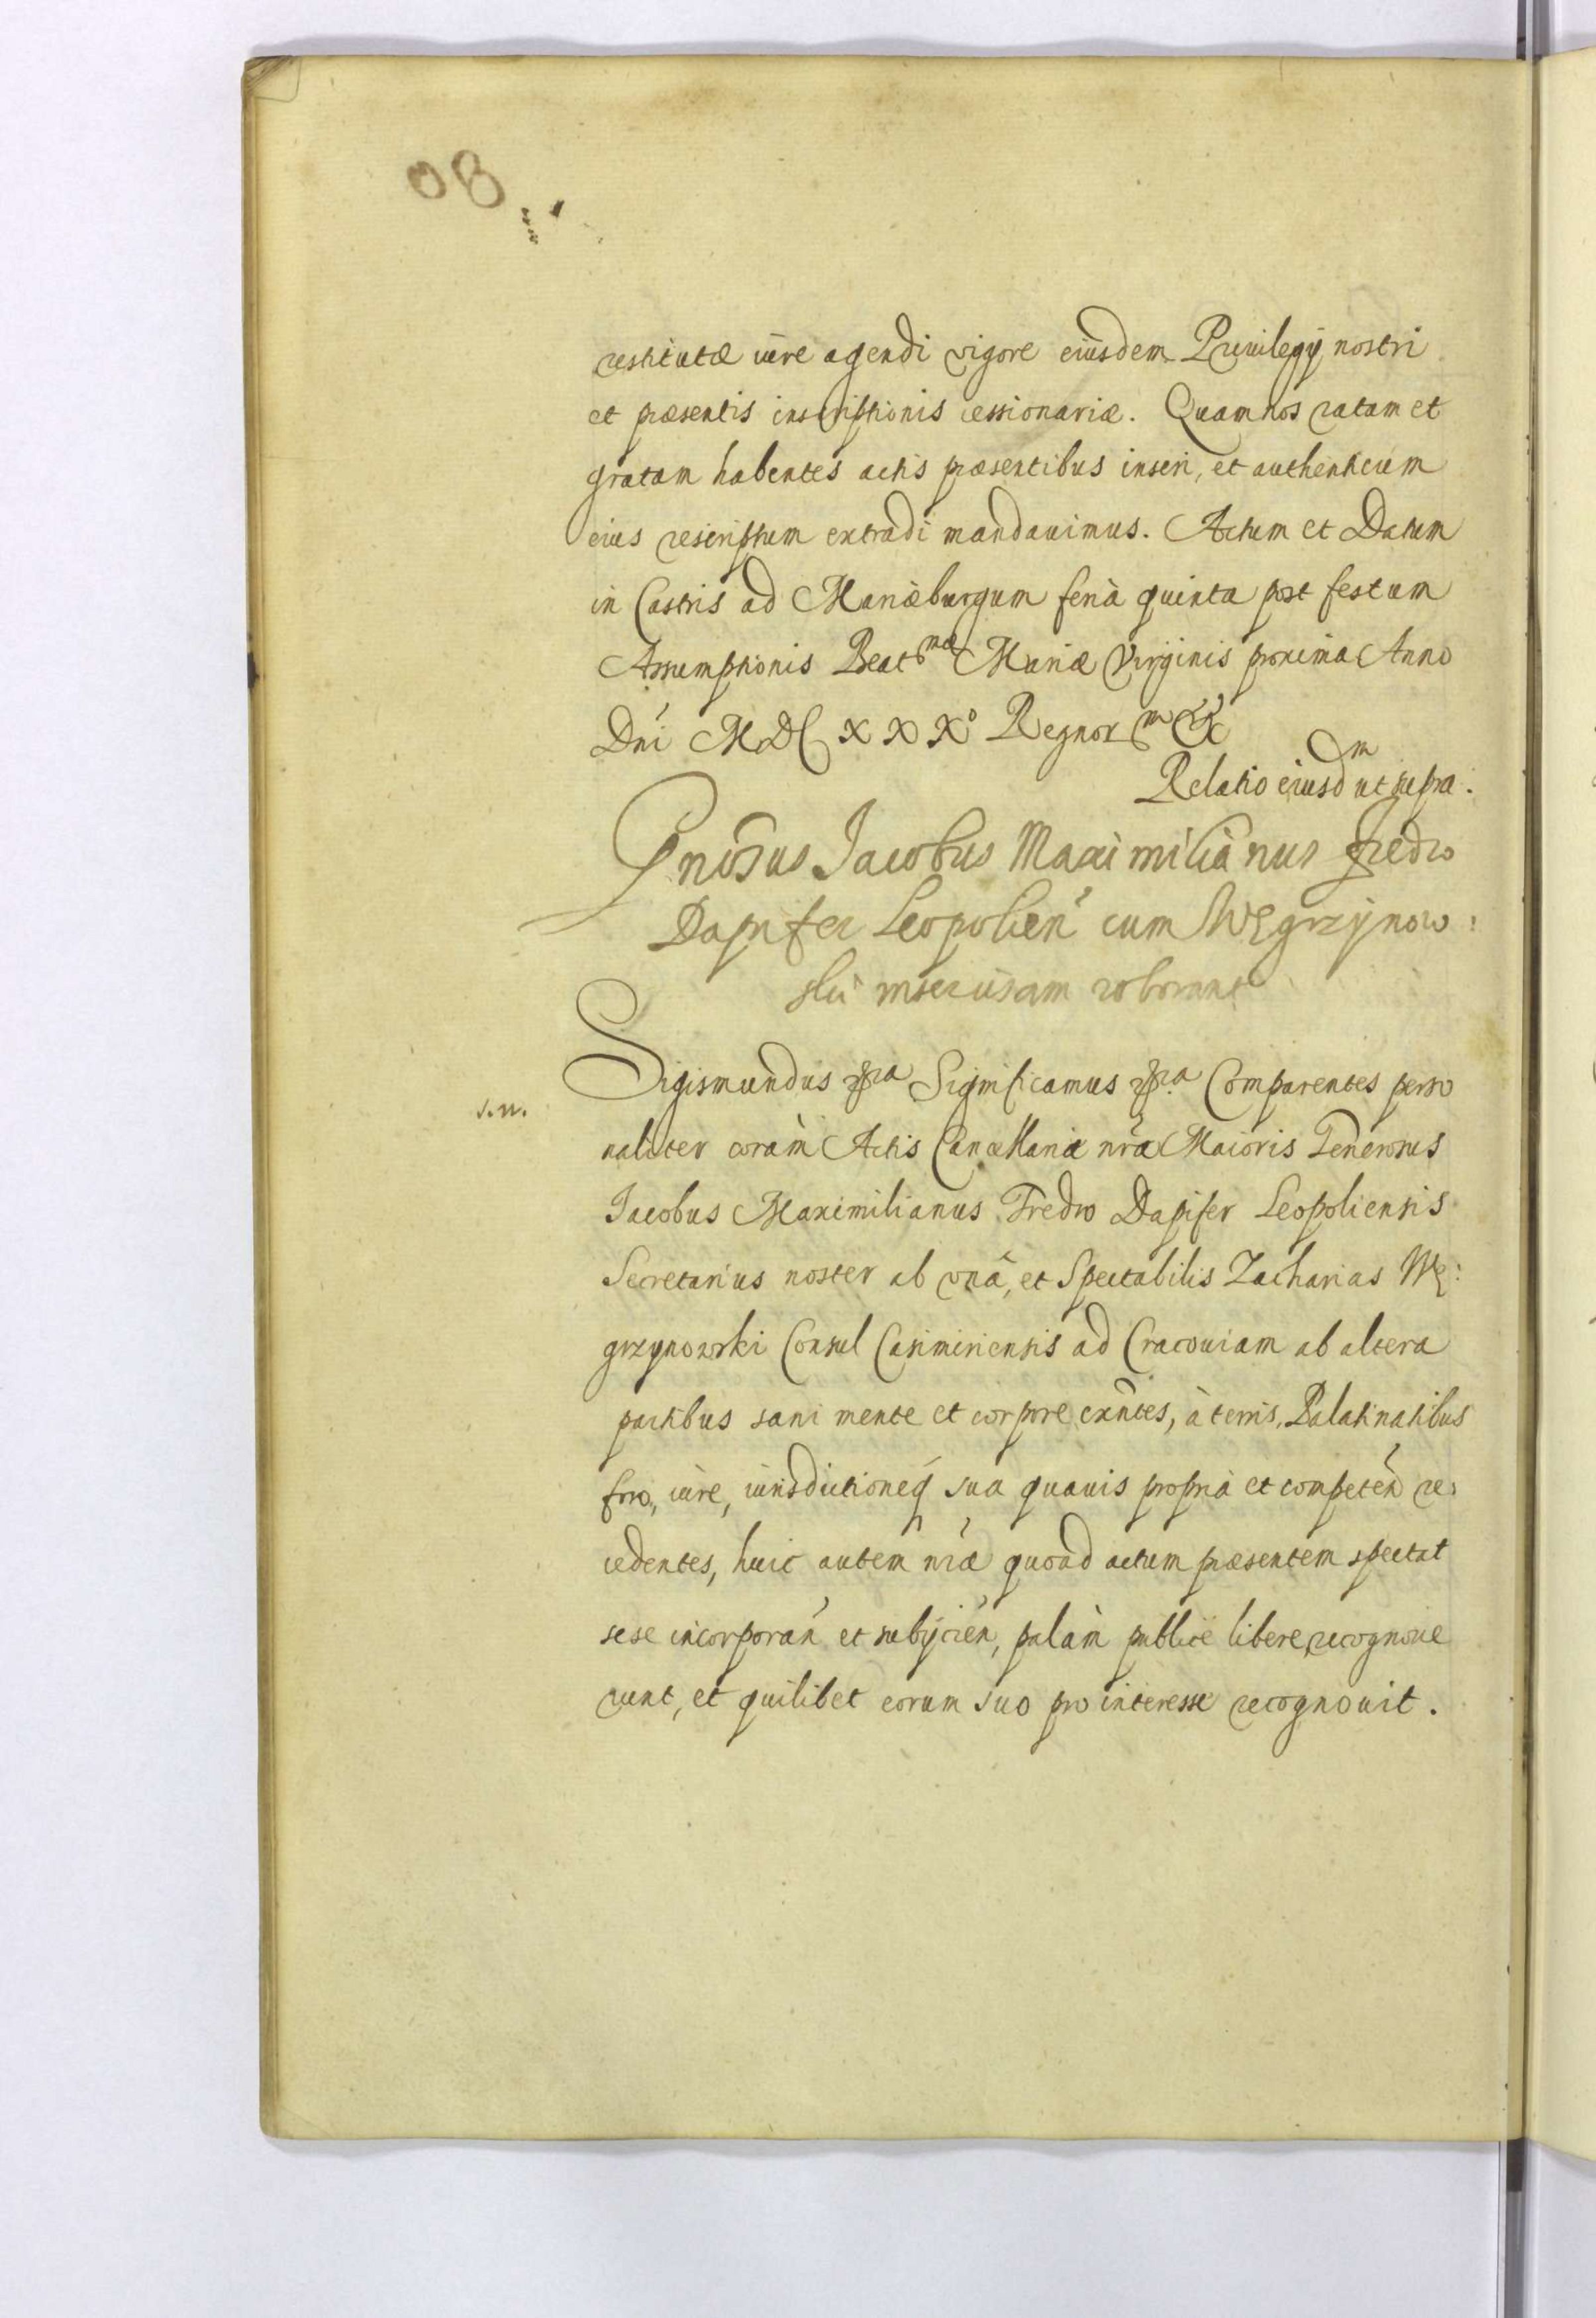 08
restitutæ iure agendi vigore eiusdem Priuilegij nostri
et præsentis inscriptionis cessionariæ. Quam nos ratam et
gratam habentes actis præsentibus inseri, et authenticum
eius rescriptum extradi mandauimus. Actum et Datum
in Castris ad Mariæburgum feria quinta post festum
Assumptionis Beatmæ Mariæ Virginis proxima Anno
Dni MDC XXX° Regnorm &
Relatio eiusdm ut supra.
Gnosus Jacobus Maximilianus Fredro
Dapifer Leopolien cum Węgrzynow:
ski roborant
Sigismundus Significamus Comparentes perso
s.n.
naliter coram Actis Cancellariæ nræ Maioris Generosus
Jacobus Maximilianus Fredro Dapifer Leopoliensis
Secretarius noster ab vna, et Spectabilis Zacharias Wę:
grzynowski Consul Casimiriensis ad Cracouiam ab altera
partibus sani mente et corpore exntes, à terris, Palatinatibus
foro, iure, iurisdictioneq sua quauis propria et competen re:
cedentes, huic autem nræ quoad actum præsentem spectat
sese incorporan et subijcien, palam publice libere recognoue
runt, et quilibet eorum suo pro interesse recognouit.